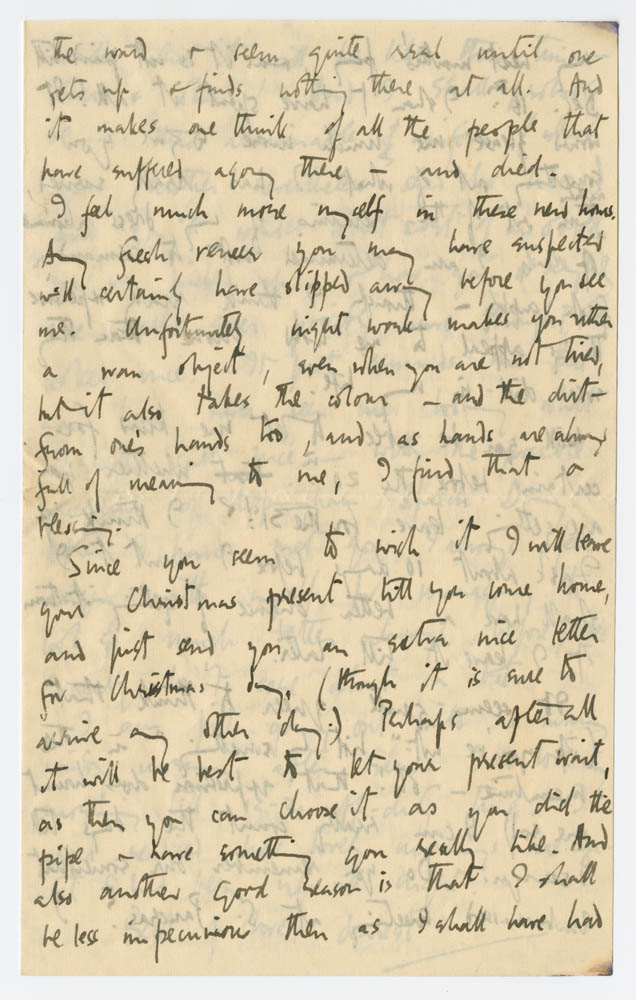 the ward & seem quite real until one
gets up & finds nothing there at all. And
it makes one think of all the people that
have suffered agony there – and died.
I feel much more myself in these new hours.
Any fresh veneer you may have suspected
will certainly have slipped away before you see
me. Unfortunately night work makes you rather
a wan object, even when you are not tired,
but it also takes the colour – and the dirt –
from one's hands too, and as hands are always
full of meaning to me, I find that a
blessing.
Since you seem to wish it I will leave
your Christmas present till you come home,
and just send you an extra nice letter
for Christmas day, (though it is sure to
arrive any other day.) Perhaps after all
it will be best to let your present wait,
as then you can choose it as you did the
pipe & have something you really like. And
also another good reason is that I shall
be less impecunious then as I shall have had